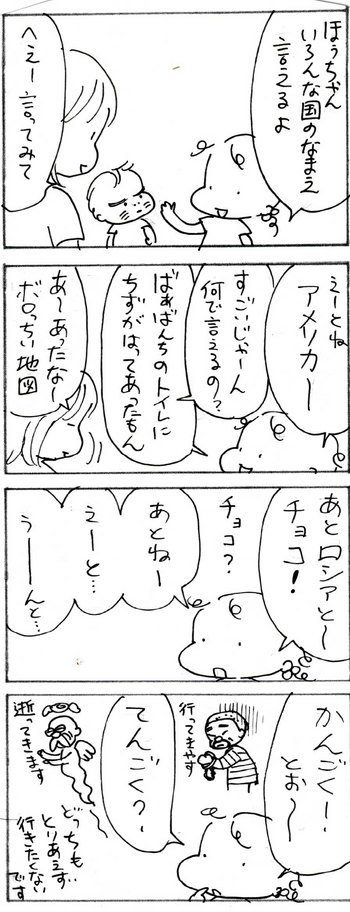 ほぅちゃん
いろんな国のなまえ
言えるよ
へぇー言ってみて
えーとね
アメリカー
すごいじゃーん
何で言えるの？
ばぁばんちのトイレに
ちずがはってあったもん
あ〜あったなー
ボロっちい地図
あとロシアと〜
チョコ！
チョコ？
あとねー
えーと…
うーーんと…
かんごくー！
とぉ〜
行ってきやす
てんごく？
逝ってきます
どっちも
とりあえず
行きたくない
です